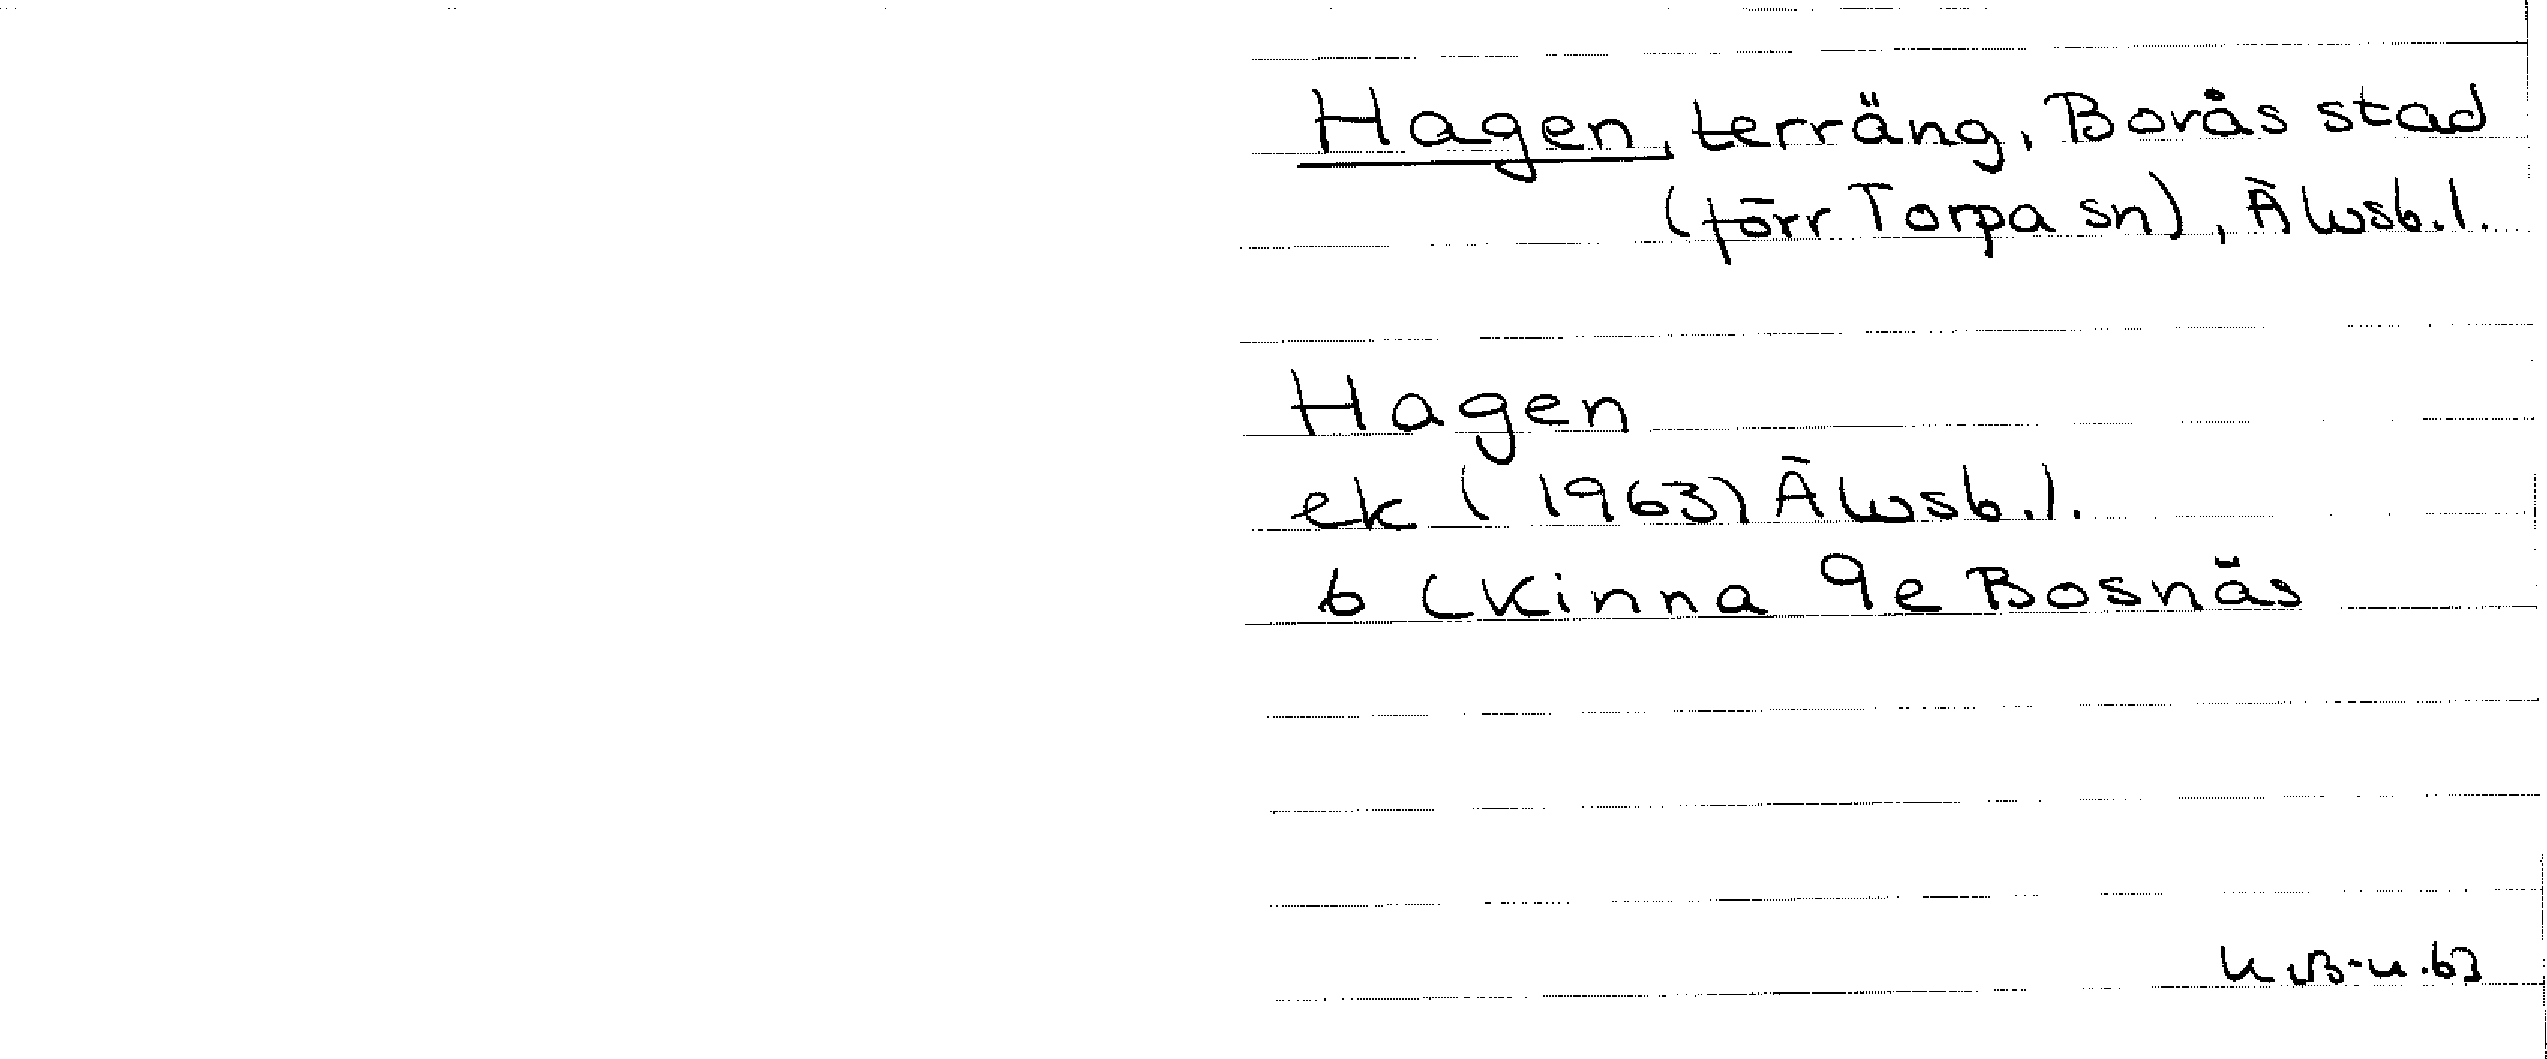 Hagen, terräng, Borås stad
(förr Torpa sn), Älvsb.l.
Hagen
ek (1963) Älvsb.l.
b (Kinna 9e Bosnäs